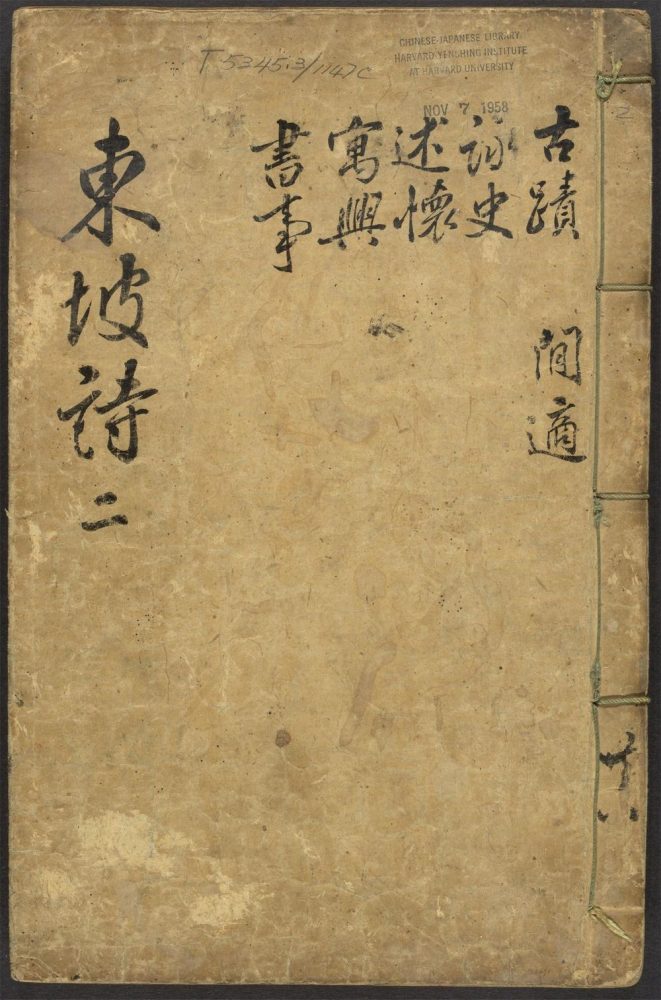 古蹟 閒適
詠史
述懷
寓興
書事
東坡詩 二
CHINESE-JAPANESE LIBRARY
HARVARD-YENCHING INSTITUTE
AT HARVARD UNIVERSITY
NOV 7 1958
T 5345.3/1147C
2